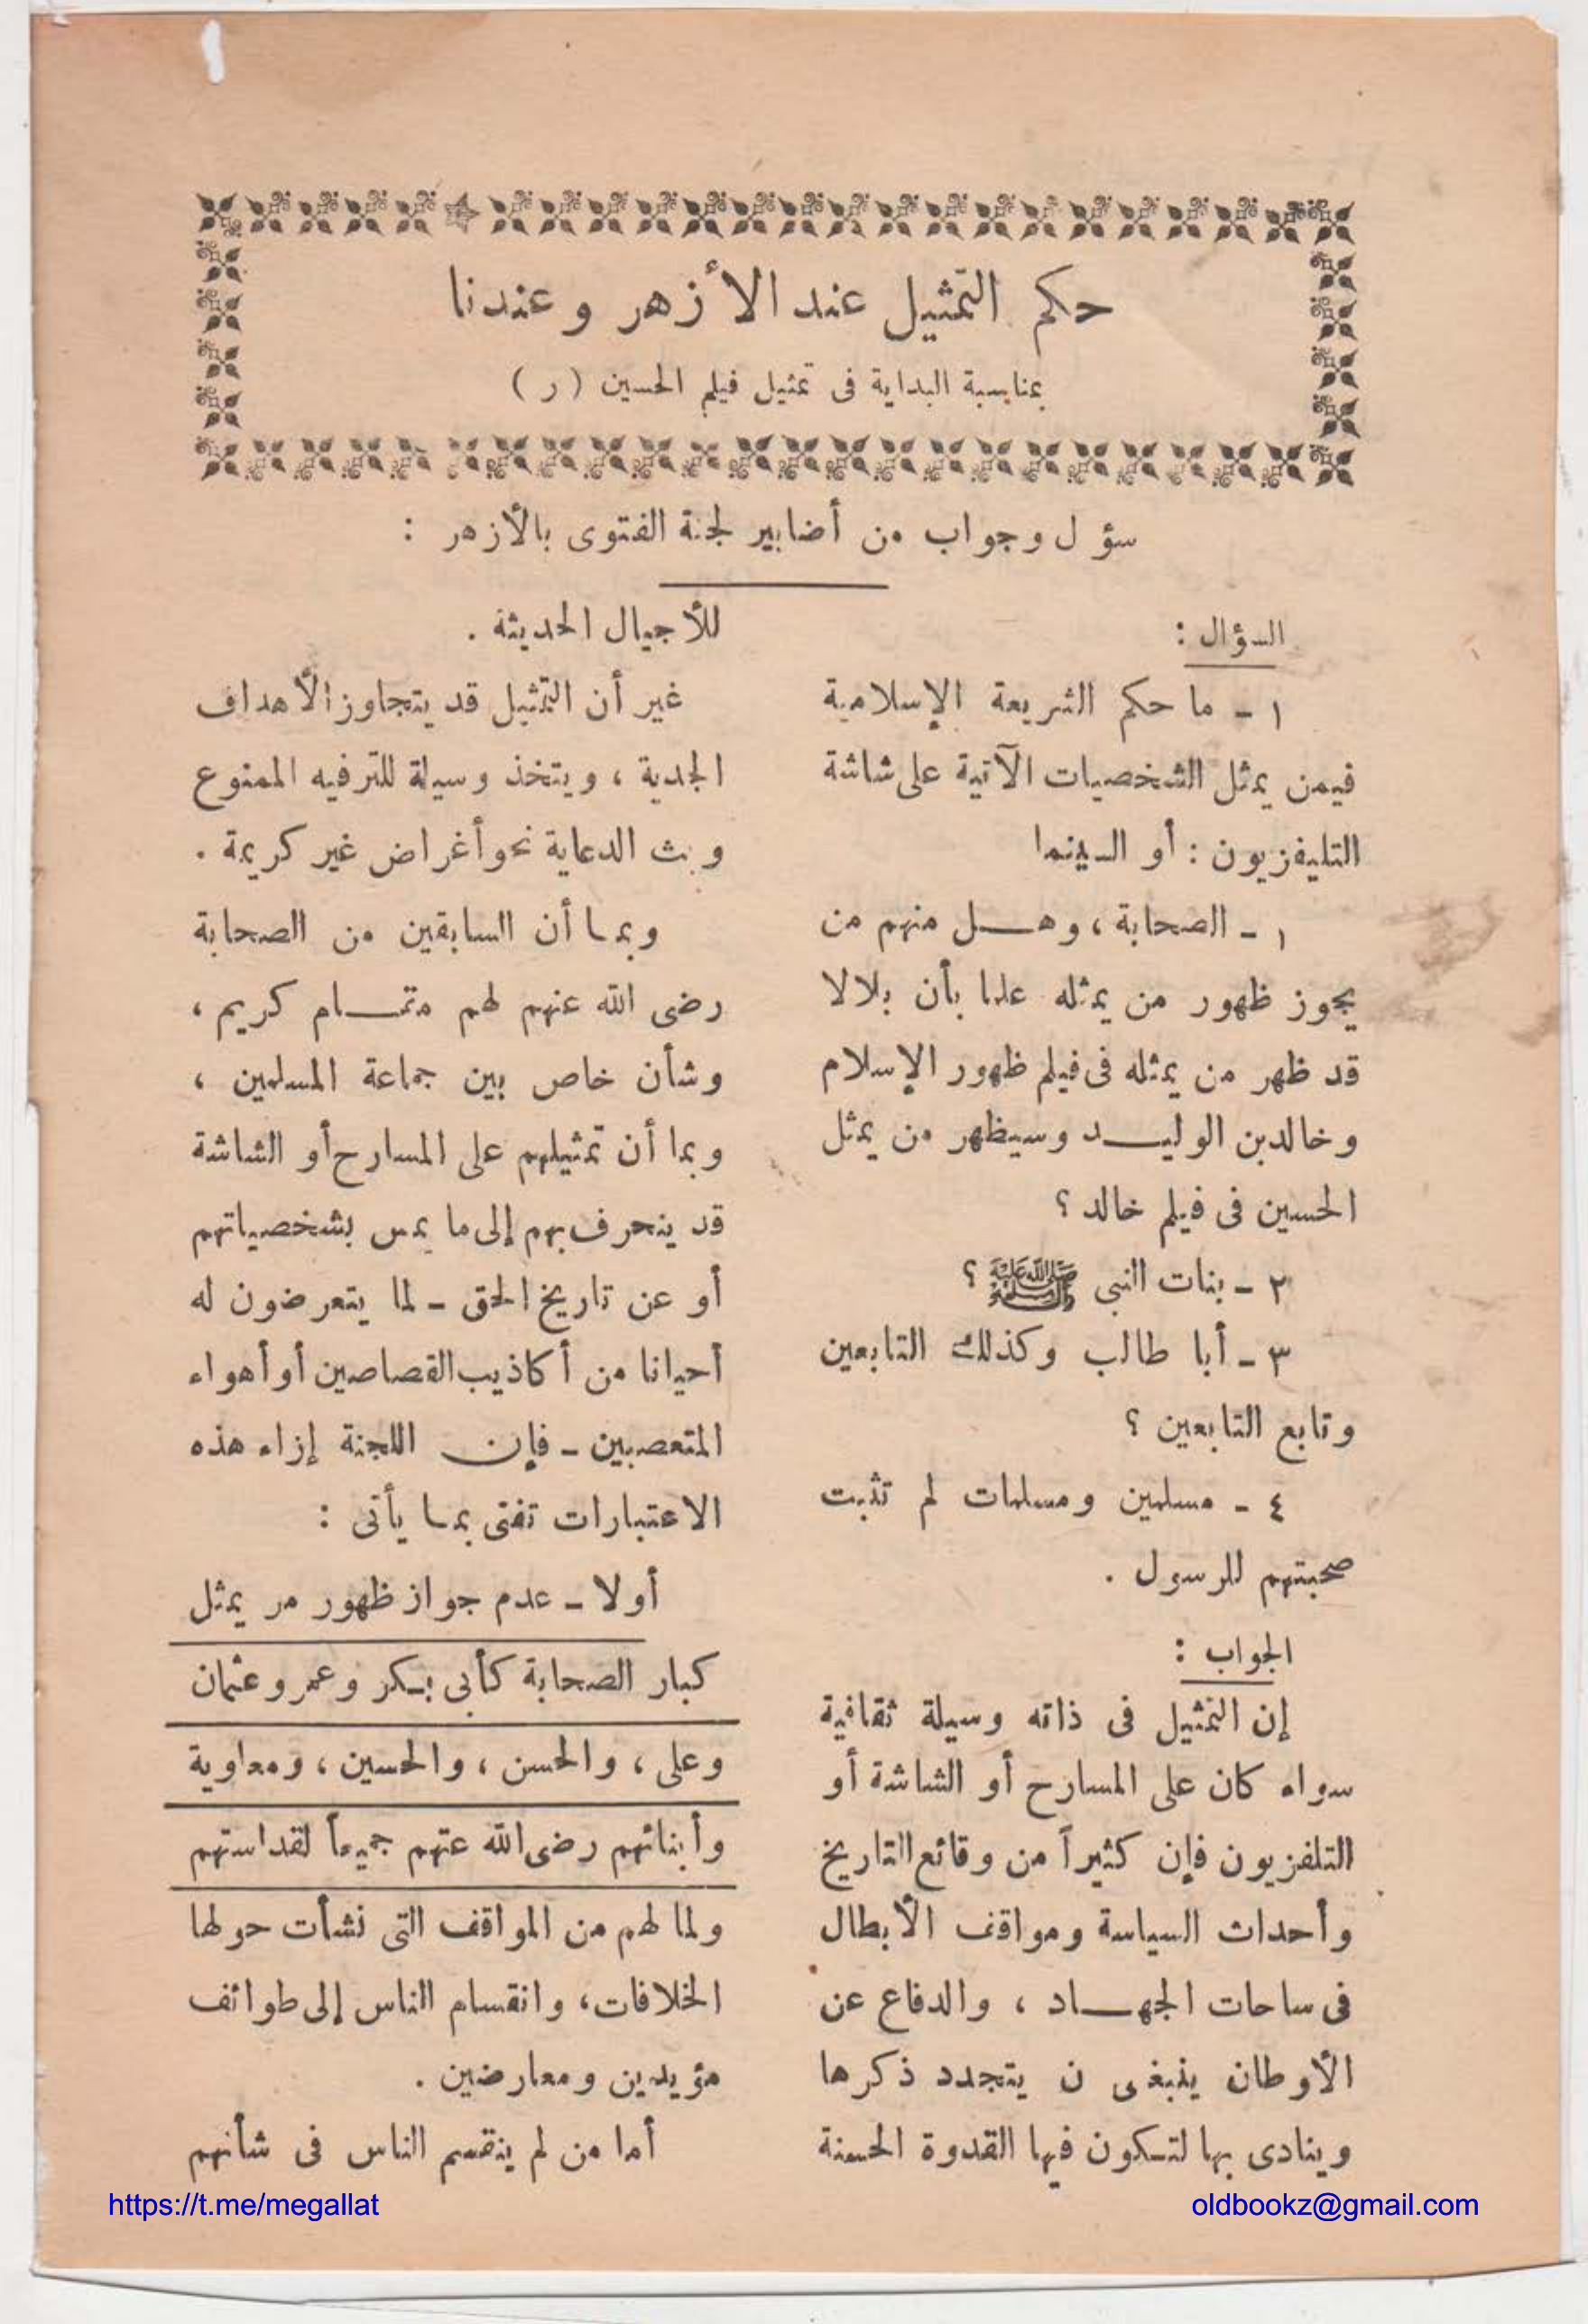 حكم التمثيل عند الأزهر وعندنا
بمناسبة البداية فى تمثيل فيلم الحسين (ر)
سؤ ل وجواب من أضابير لجنة الفتوى بالأزهر :
السؤال :
١ ـ ما حكم الشريعة الإسلامية
فيمن يمثل الشخصيات الآتية على شاشة
التليفزيون : أو السينما
١ ـ الصحابة ، وهـــل منهم من
يجوز ظهور من يمثله علما بأن بلالا
قد ظهر من يمثله فى فيلم ظهور الإسلام
وخالد بن الوليـــد وسيظهر من يمثل
الحسين فى فيلم خالد ؟
٢ ـ بنات النبي ﷺ ؟
٣ ـ أبا طالب وكذلك التابعين
وتابع التابعين ؟
٤ ـ مسلمين ومسلمات لم تثبت
صحبتهم للرسول .
الجواب :
إن التمثيل فى ذاته وسيلة ثقافية
سواء كان على المسارح أو الشاشة أو
التلفزيون فإن كثيراً من وقائع التاريخ
وأحداث السياسة ومواقف الأبطال
فى ساحات الجهـــاد ، والدفاع عن
الأوطان ينبغى ن يتجدد ذكرها
وينادى بها لتكون فيها القدوة الحسنة
للأجيال الحديثة .
غير أن التمثيل قد يتجاوز الأهداف
الجدية ، ويتخذ وسيلة للترفيه الممنوع
وبث الدعاية نحو أغراض غير كريمة .
وبما أن السابقين من الصحابة
رضى الله عنهم لهم مقـــام كريم ،
وشأن خاص بين جماعة المسلمين ،
وبما أن تمثيلهم على المسارح أو الشاشة
قد ينحرف بهم إلى ما يمس بشخصياتهم
أو عن تاريخ الحق ـ لما يتعرضون له
أحيانا من أكاذيب القصاصين أو أهواء
المتعصبين ـ فإن اللجنة إزاء هذه
الاعتبارات تفتى بما يأتى :
أولا ـ عدم جواز ظهور من يمثل
كبار الصحابة كأبى بكر وعمر وعثمان
وعلى ، والحسن ، والحسين ، ومعاوية
وأبنائهم رضى الله عنهم جميعاً لقداستهم
ولما لهم من المواقف التى نشأت حولها
الخلافات، وانقسام الناس إلى طوائف
مؤيدين ومعارضين .
أما من لم ينقسم الناس فى شأنهم
https://t.me/megallat
oldbookz@gmail.com